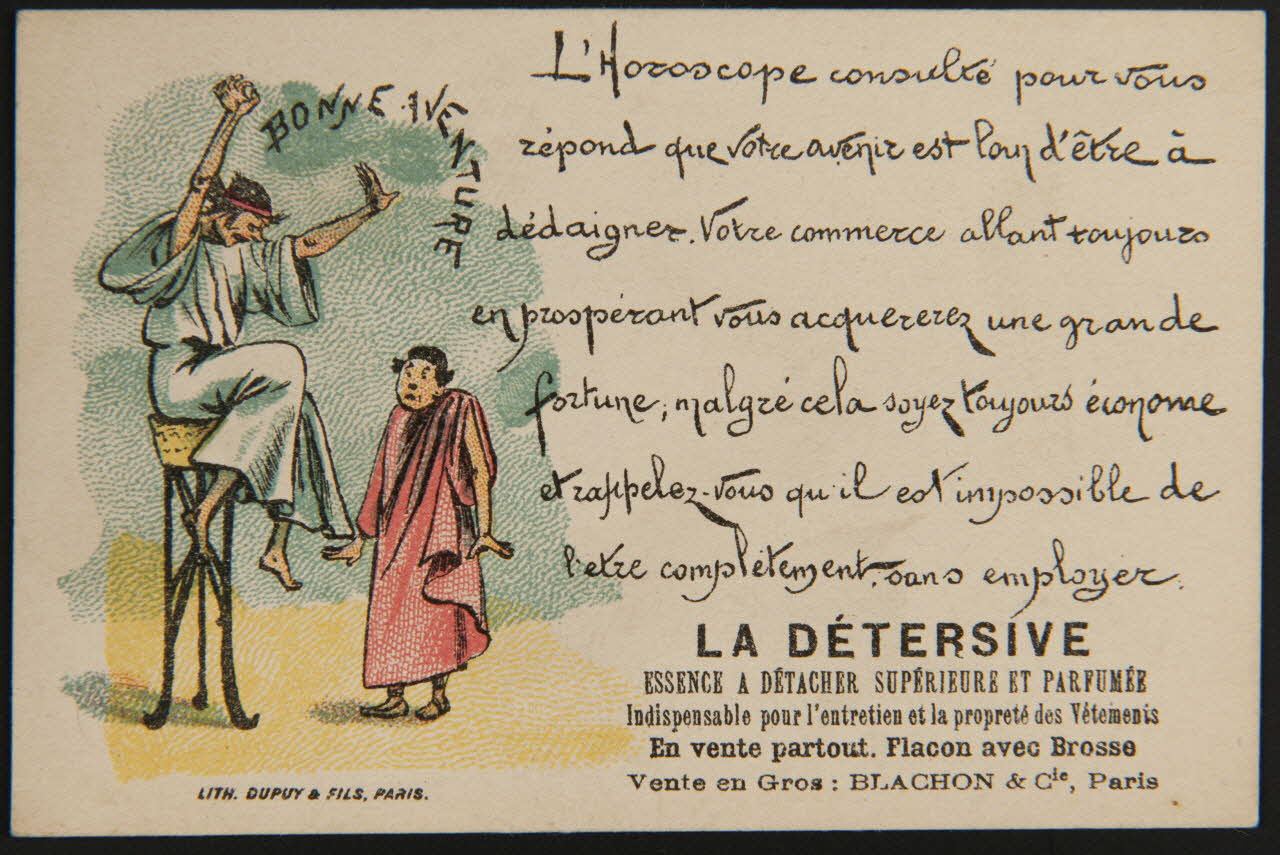 BONNE AVENTURE
L'Horoscope consulté pour vous
répond que votre avenir est loin d'être à
dédaigner. Votre commerce allant toujours
en prospérant vous acquererez une grande
fortune, malgré cela soyez toujours économe
et rappelez-vous qu'il est impossible de
l'etre complètement, sans employer.
LA DÉTERSIVE
ESSENCE A DÉTACHER SUPÉRIEURE ET PARFUMÉE
Indispensable pour l'entretien et la propreté des Vétements
En vente partout. Flacon avec Brosse
Vente en Gros : BLACHON & Cie, Paris
LITH. DUPUY & FILS, PARIS.